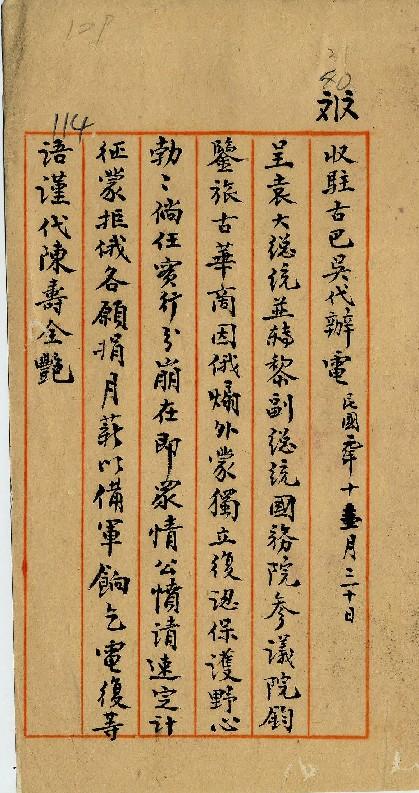 收駐古巴吳代辦電 民國元年十一月三十日
呈袁大總統並轉黎副總統國務院參議院鈞
鑒旅古華商因俄煽外蒙獨立復認保護野心
勃〻倘任實行分崩在即眾情公憤請速定計
征蒙拒俄各願捐月薪以備軍餉乞電復等
語謹代陳壽全艷
114